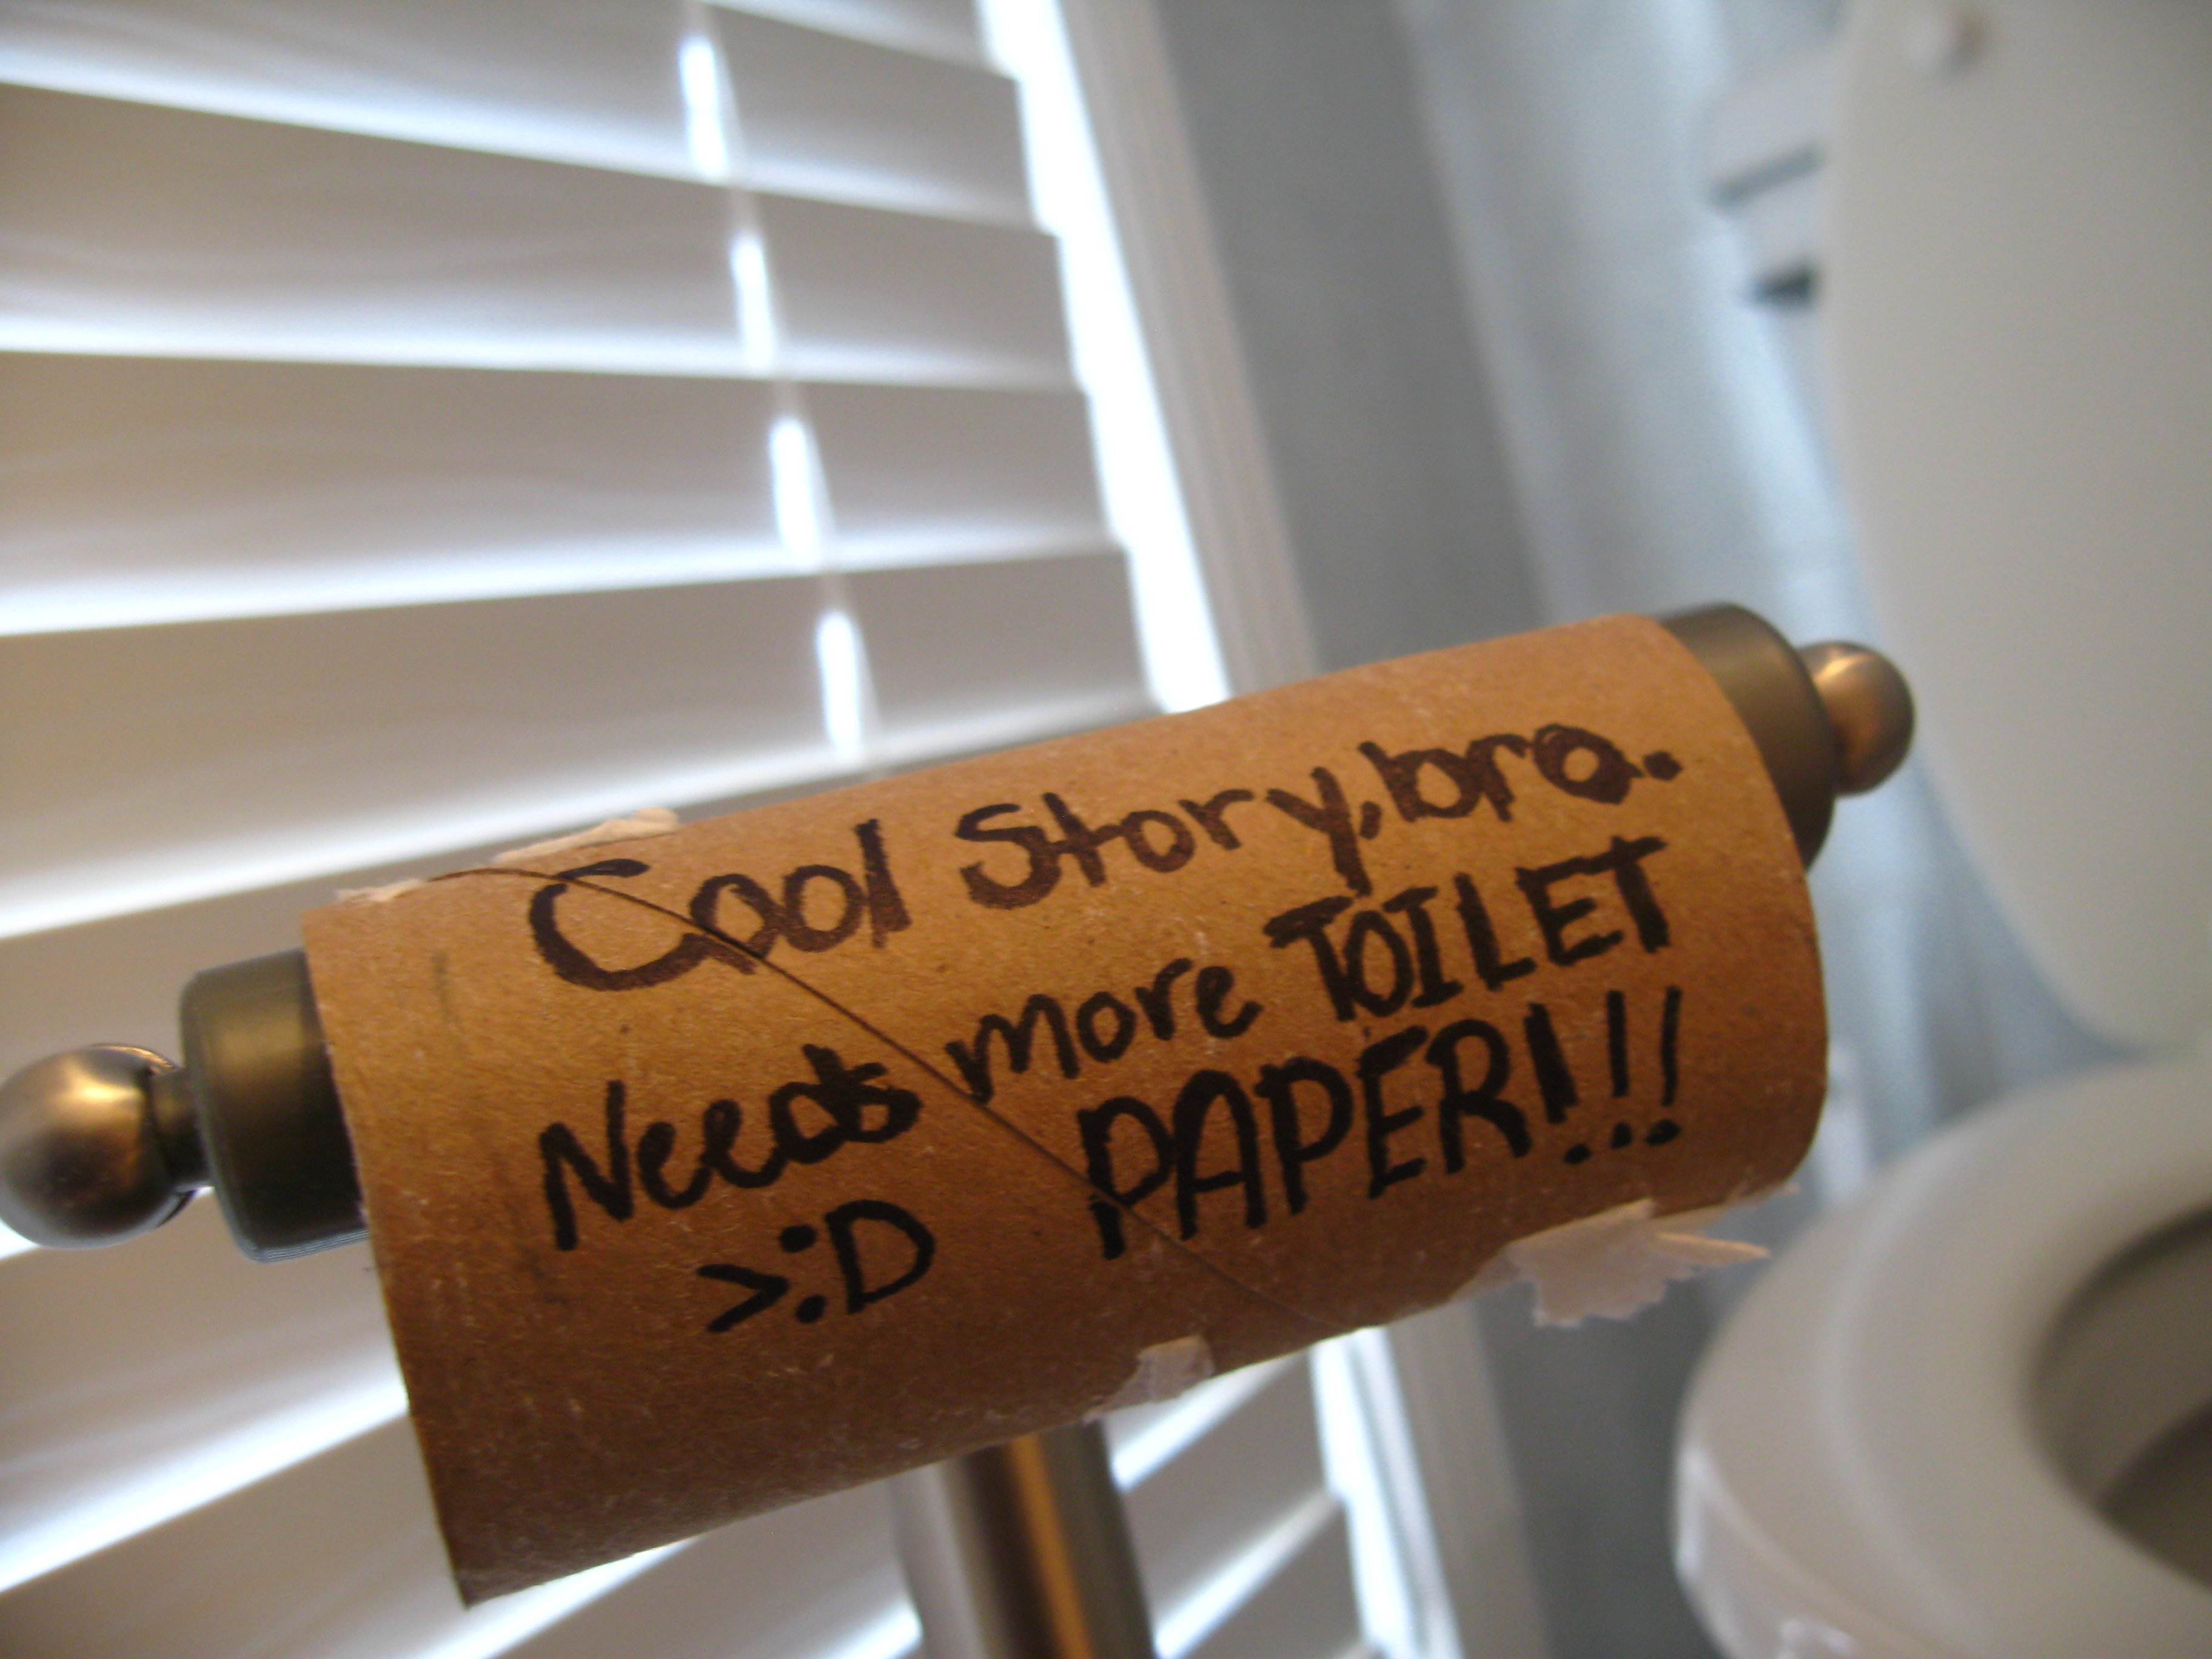 Cool Story, bro.
Needs more TOILET
PAPER!!!
>:D